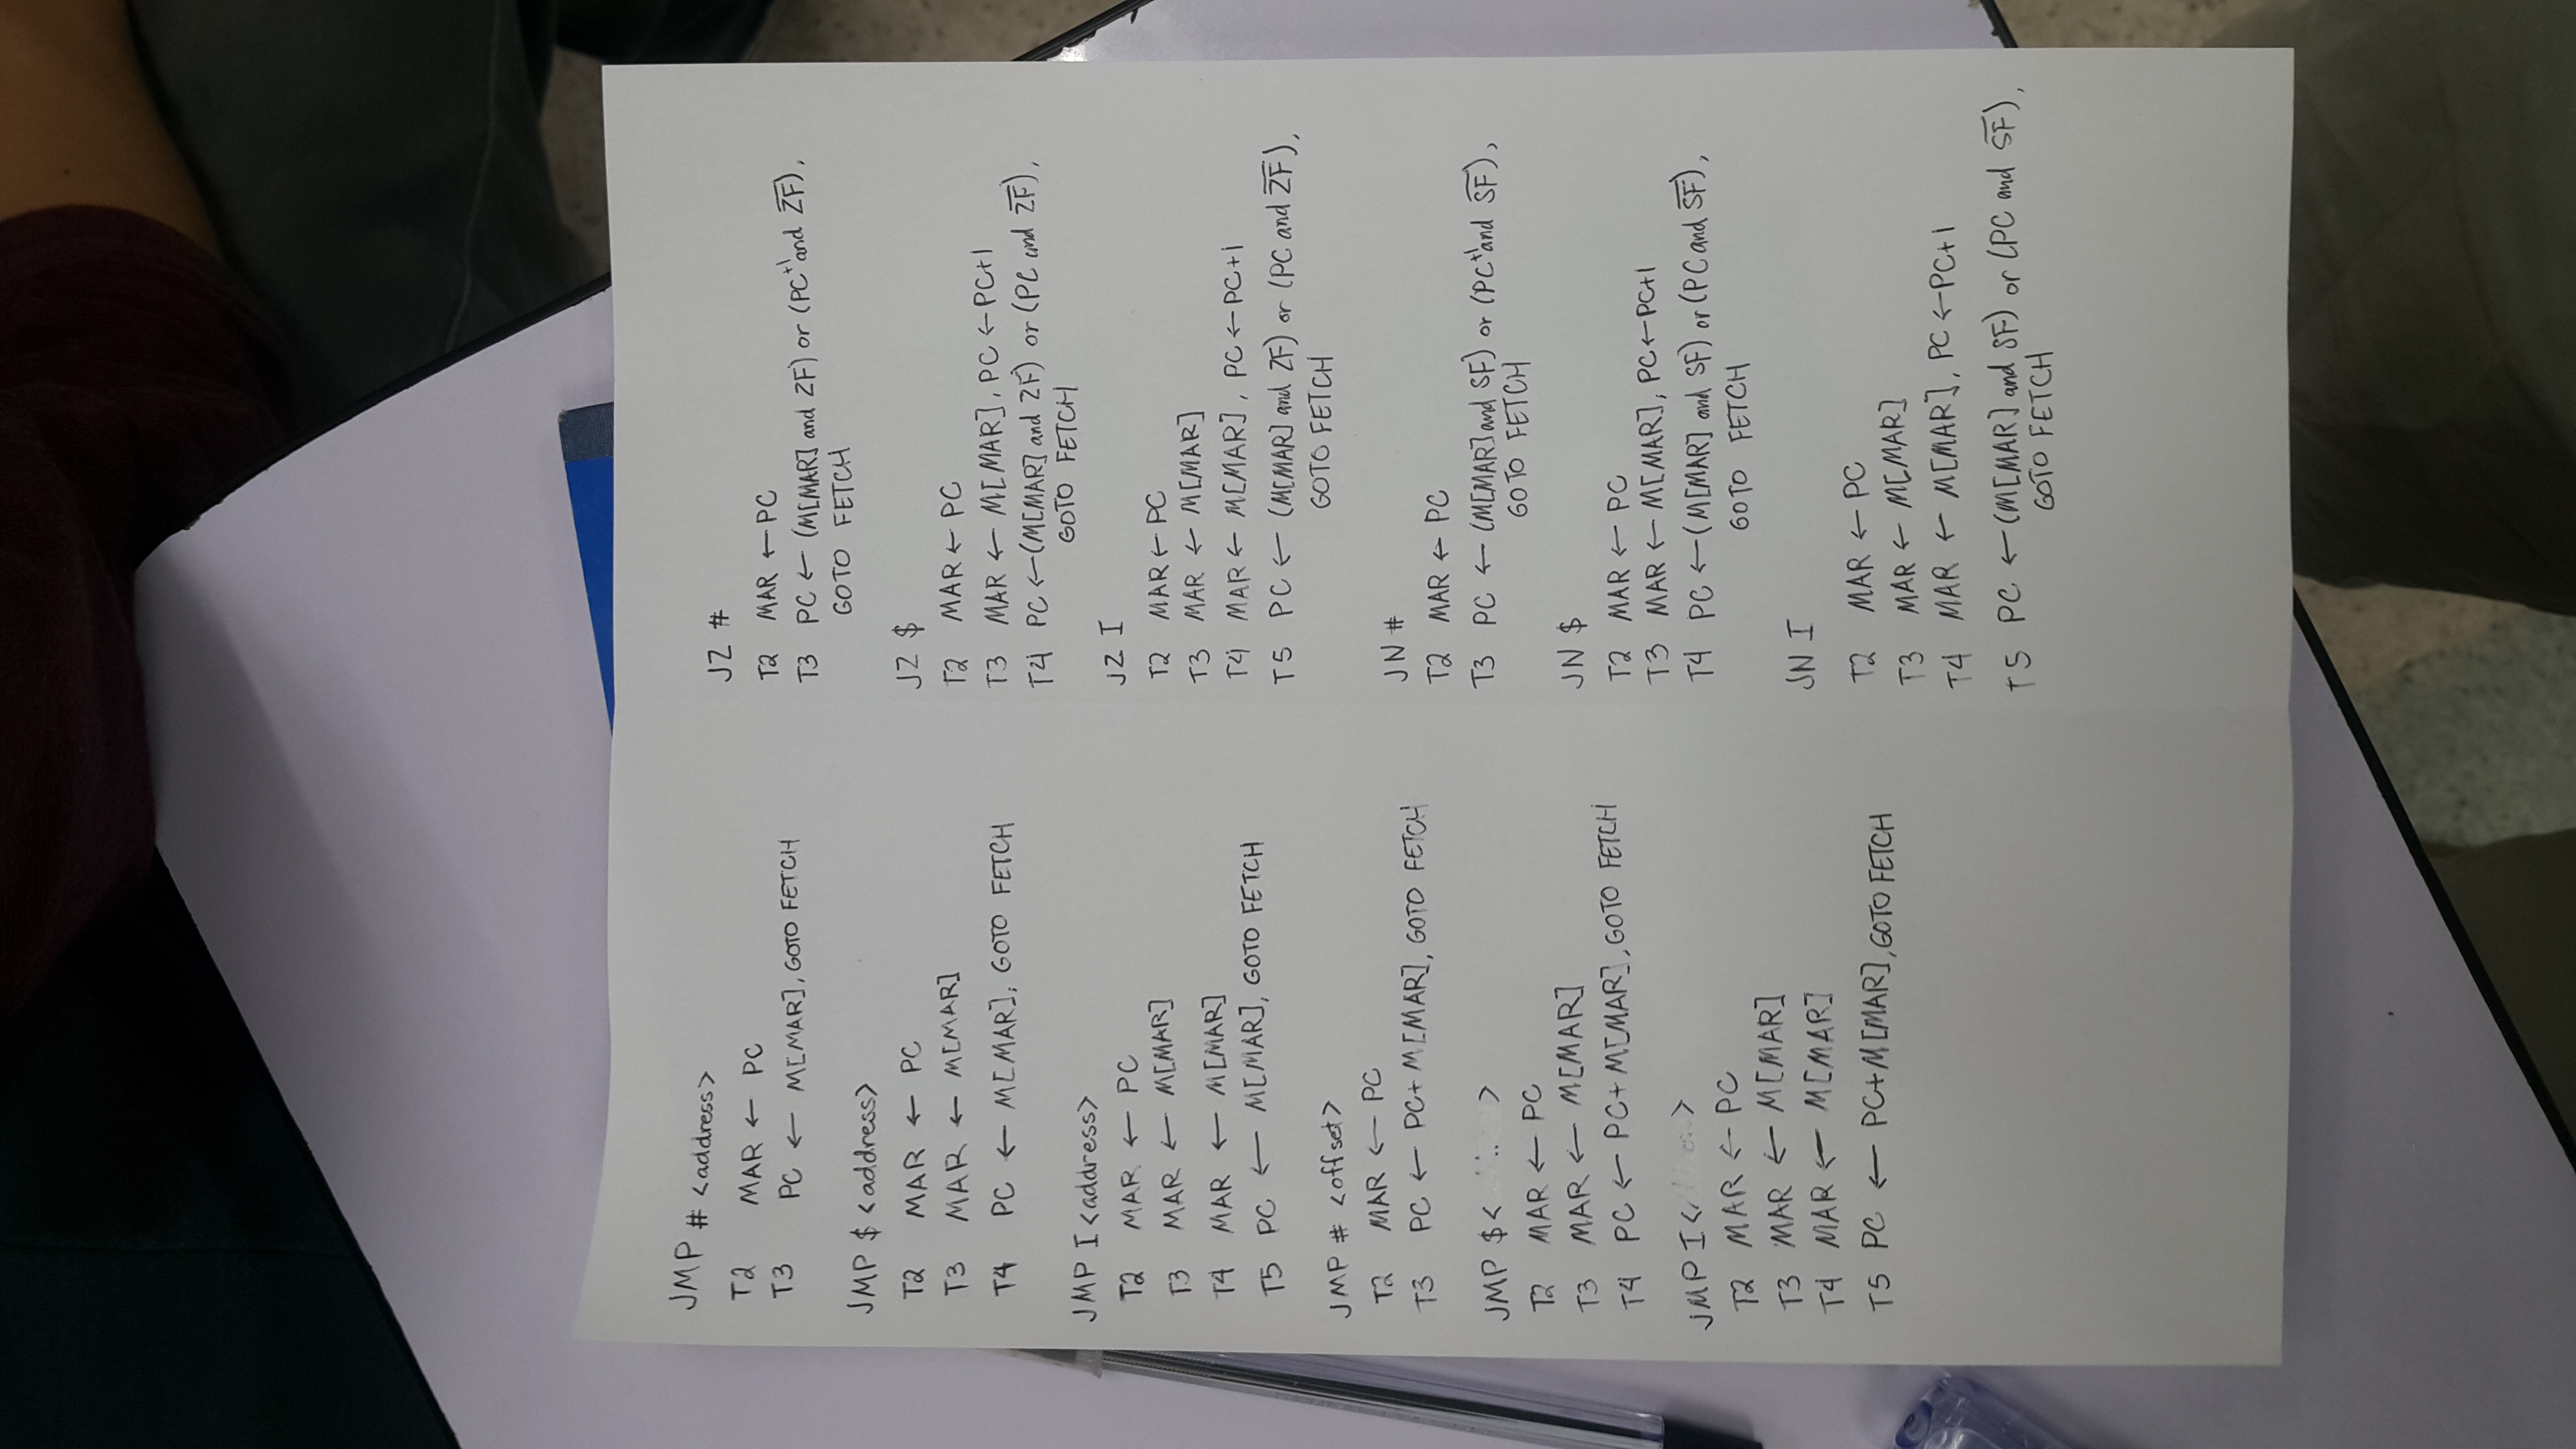 JMP # <address>
T2 MAR ← PC
T3 PC ← M[MAR], GOTO FETCH
JMP $ <address>
T2 MAR ← PC
T3 MAR ← M[MAR]
T4 PC ← M[MAR], GOTO FETCH
JMP I <address>
T2 MAR ← PC
T3 MAR ← M[MAR]
T4 MAR ← M[MAR]
T5 PC ← M[MAR], GOTO FETCH
JMP # <offset>
T2 MAR ← PC
T3 PC ← PC + M[MAR], GOTO FETCH
JMP $ < >
T2 MAR ← PC
T3 MAR ← M[MAR]
T4 PC ← PC + M[MAR], GOTO FETCH
JMP I < >
T2 MAR ← PC
T3 MAR ← M[MAR]
T4 MAR ← M[MAR]
T5 PC ← PC + M[MAR], GOTO FETCH
JZ #
T2 MAR ← PC
T3 PC ← (M[MAR] and ZF) or (PC+1 and Z̅F̅),
GOTO FETCH
JZ $
T2 MAR ← PC
T3 MAR ← M[MAR], PC ← PC+1
T4 PC ← (M[MAR] and ZF) or (PC and Z̅F̅),
GOTO FETCH
JZ I
T2 MAR ← PC
T3 MAR ← M[MAR]
T4 MAR ← M[MAR], PC ← PC+1
T5 PC ← (M[MAR] and ZF) or (PC and Z̅F̅),
GOTO FETCH
JN #
T2 MAR ← PC
T3 PC ← (M[MAR] and SF) or (PC+1 and S̅F̅),
GOTO FETCH
JN $
T2 MAR ← PC
T3 MAR ← M[MAR], PC ← PC+1
T4 PC ← (M[MAR] and SF) or (PC and S̅F̅),
GOTO FETCH
JN I
T2 MAR ← PC
T3 MAR ← M[MAR]
T4 MAR ← M[MAR], PC ← PC+1
T5 PC ← (M[MAR] and SF) or (PC and S̅F̅),
GOTO FETCH